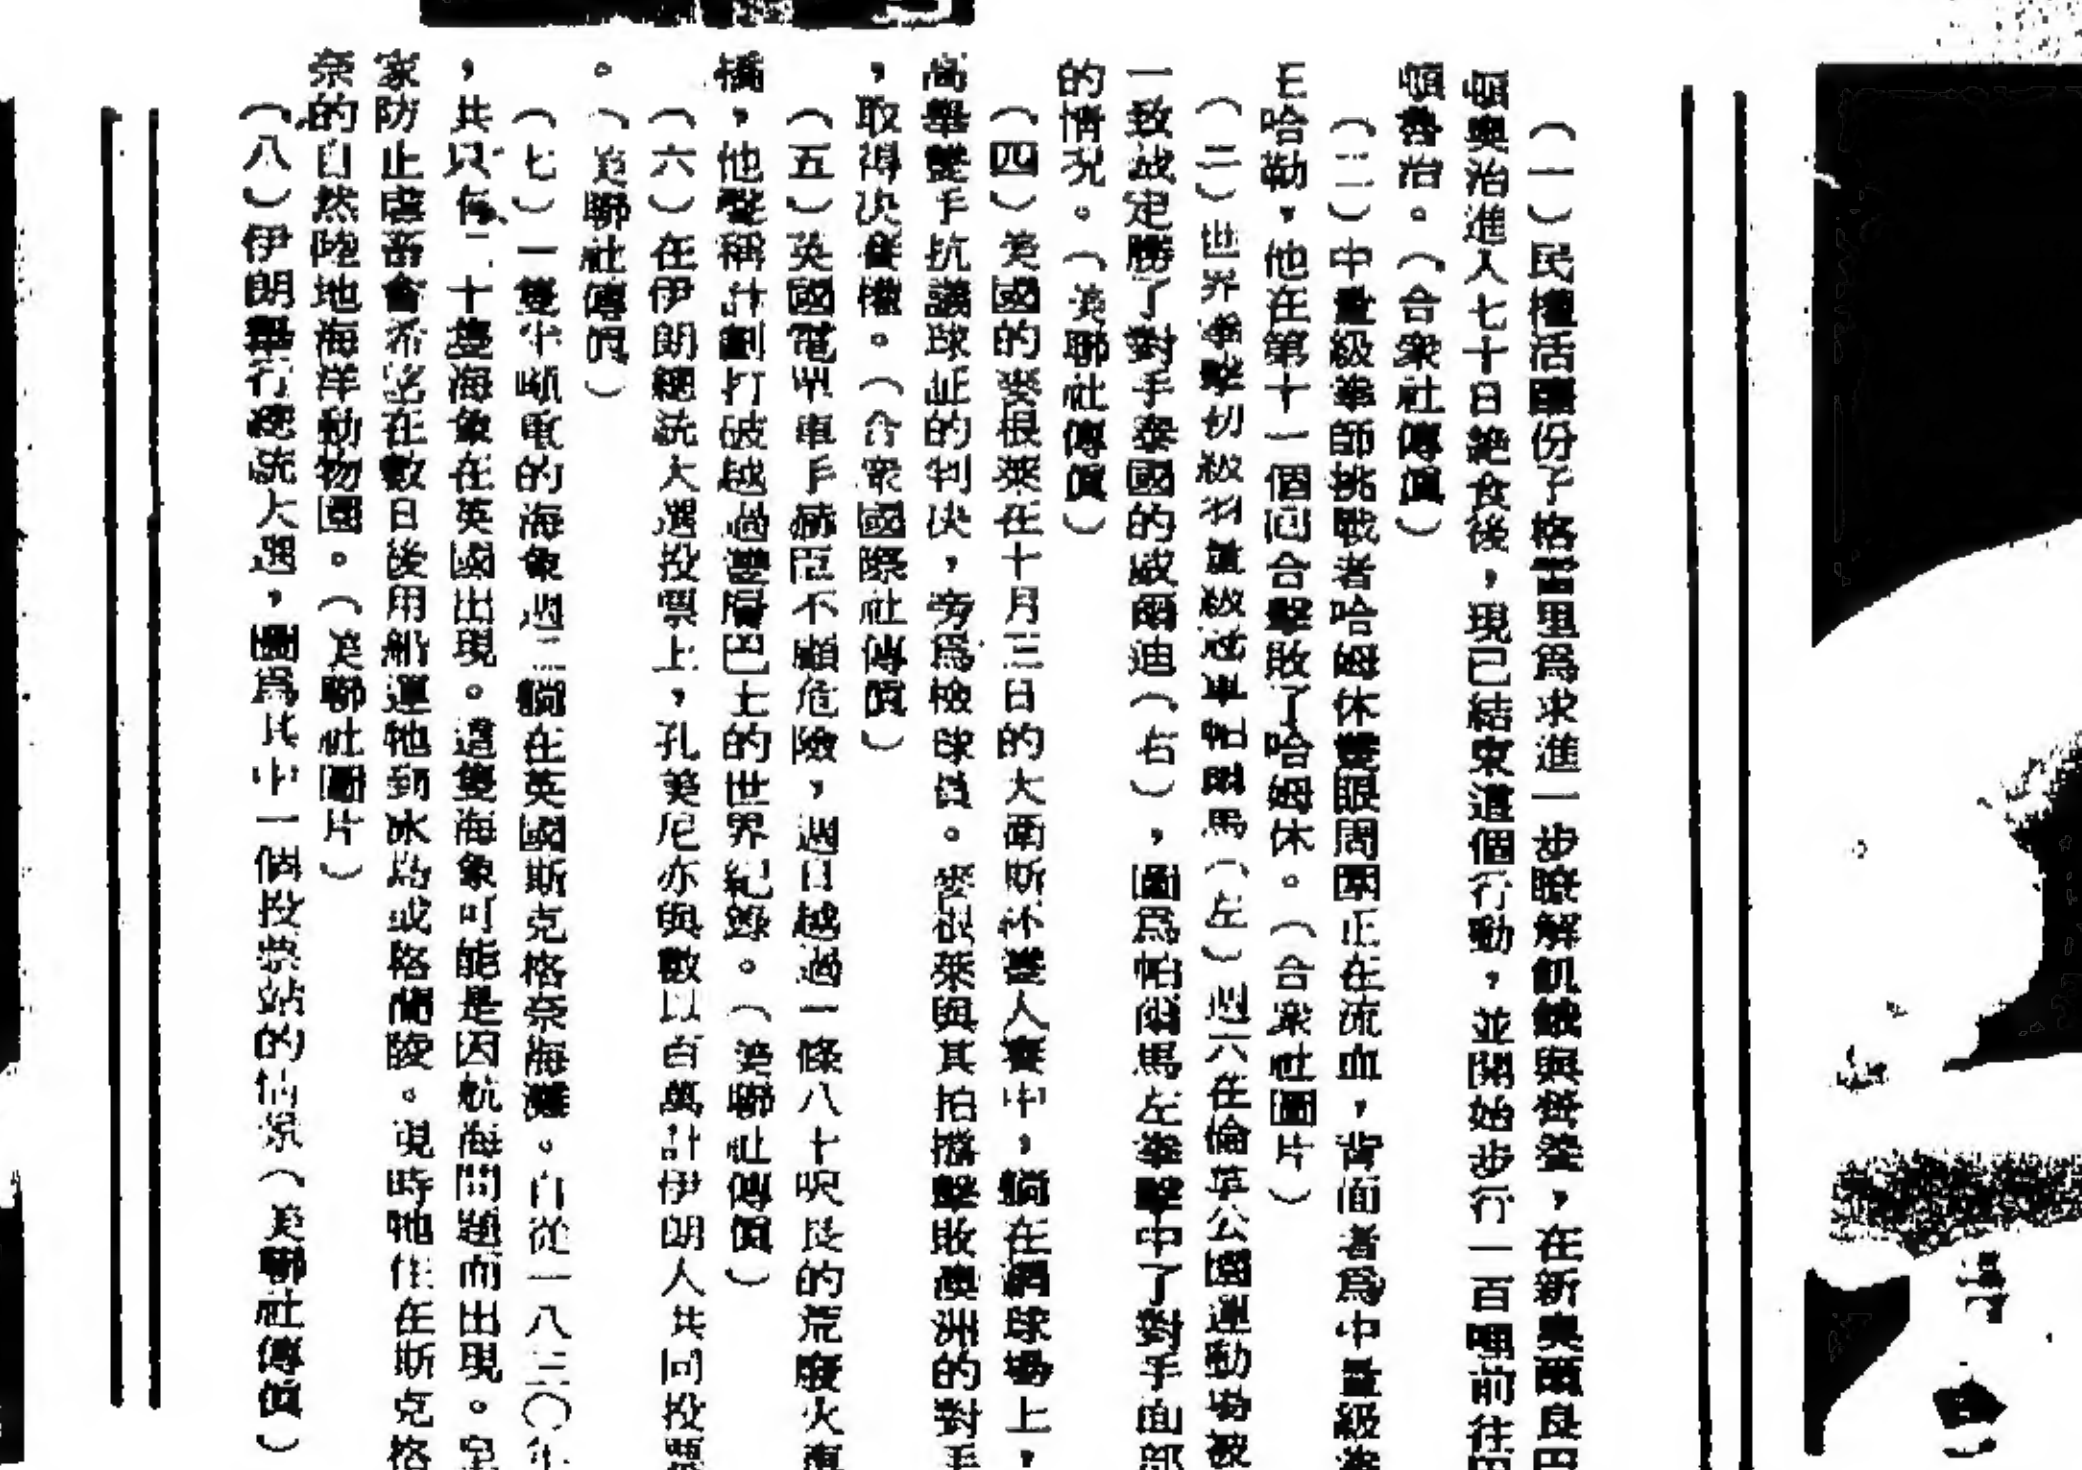 (一)民權活動份子格雷里爲求進一步瞭解飢餓與營養,在新奧爾良巴
頓與治進入七十日絕食後,現已結束這個行動,並開始步行一百哩前往巴
頓魯治。(合衆社傳眞)
(二)中量級拳師挑戰者哈姆休雙眼周圍正在流血,背面者爲中量級拳
王哈勒,他在第十一個回合擊敗了哈姆休。(合衆社圖片)
(三)世界拳擊初級羽量級冠軍帕爾馬(左)週六在倫革公園運動場被
一致裁定勝了對手泰國的啟爾迪(右),圖爲帕爾馬左拳擊中了對手面部
的情況。(美聯社傳眞)
(四)美國的麥根萊在十月三日的大衛斯杯雙人賽中,躺在網球場上,
高舉雙手抗議球証的判决,旁爲檢球員。麥根萊與其拍擋擊敗澳洲的對手
,取得决賽權。(合衆國際社傳眞)
(五)英國電單車手赫臣不顧危險,週日越過一條八十呎長的荒廢火車
橋,他聲稱計劃打破越過 巴士的世界紀錄。(美聯社傳眞)
(六)在伊朗總統大選投票上,孔美尼亦與數以百萬計伊朗人共同投票
。(美聯社傳眞)
(七)一隻半噸重的海象週三躺在英國斯克格奈海灘。自從一八三〇年
,共只有二十隻海象在英國出現。這隻海象可能是因航海問題而出現。皇
家防止虐畜會希望在數日後用船運牠到冰島或格蘭陵。現時牠住在斯克格
奈的自然陸地海洋動物園。(美聯社圖片)
(八)伊朗舉行總統大選,圖爲其中一個投票站的情景(美聯社傳眞)